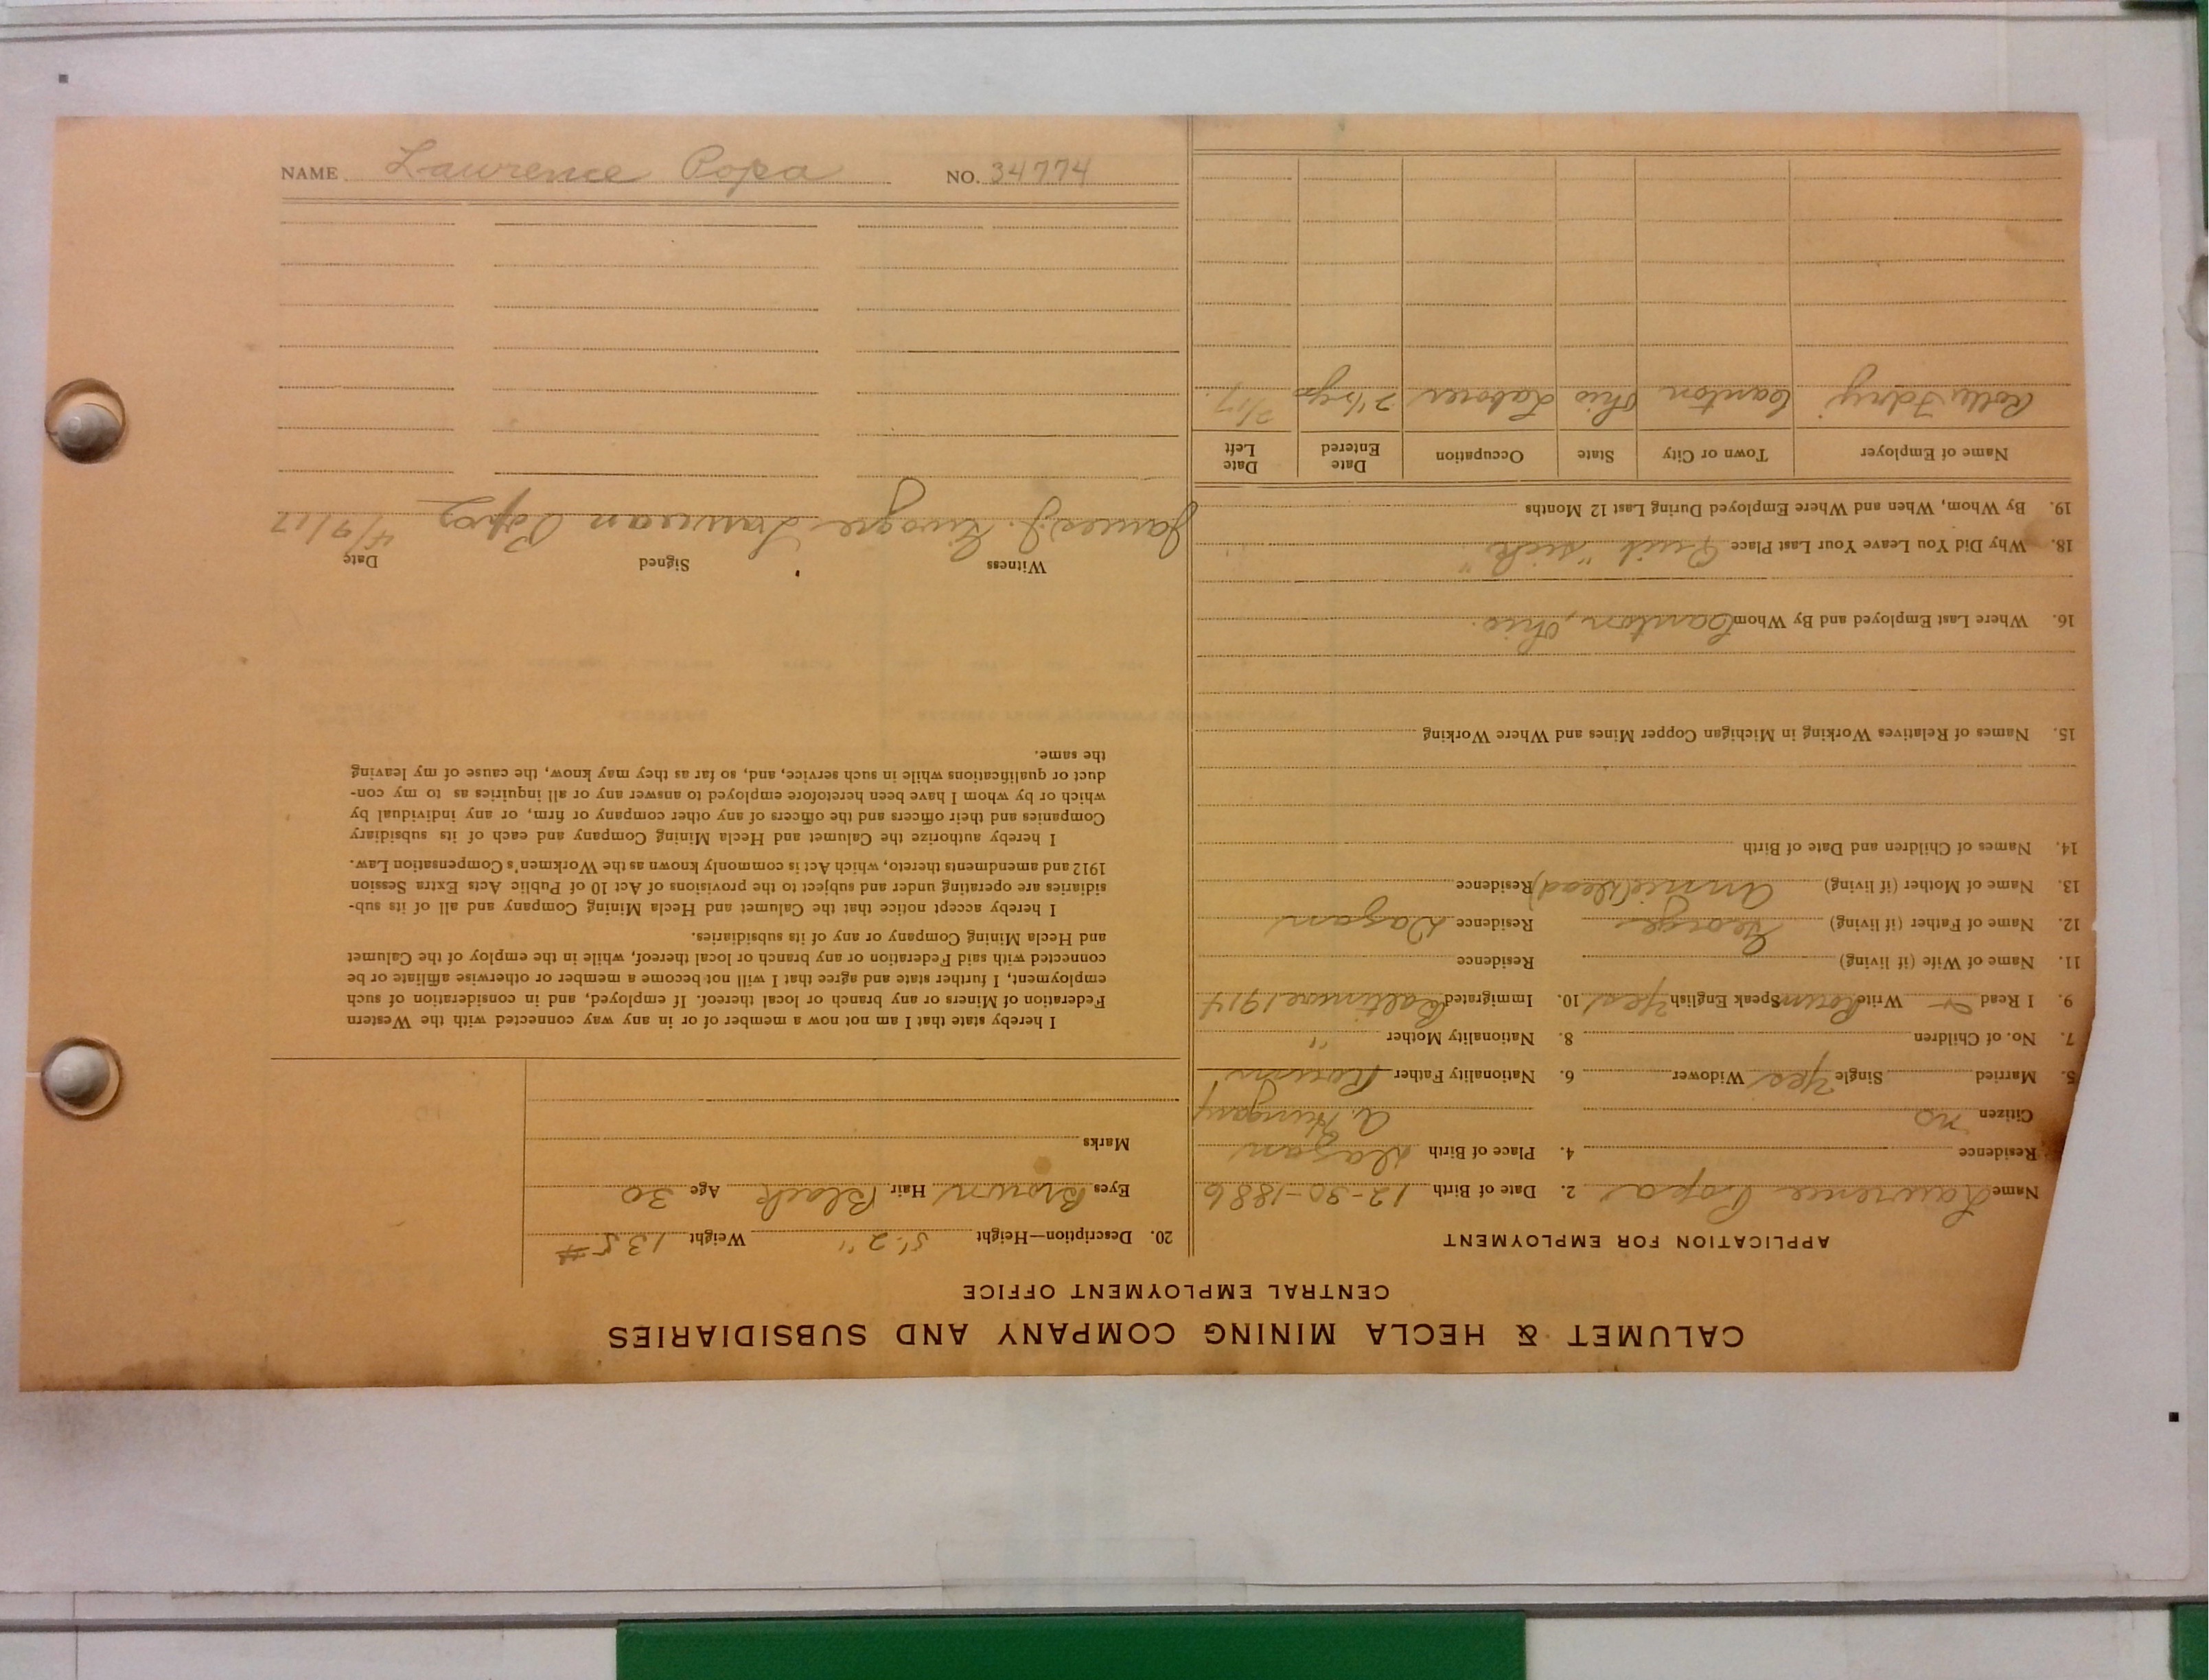 CALUMET & HECLA MINING COMPANY AND SUBSIDIARIES
CENTRAL EMPLOYMENT OFFICE
APPLICATION FOR EMPLOYMENT
Name Lawrence Popa 2. Date of Birth 12-30-1886
Residence 4. Place of Birth
Citizen no A. Hungary
5. Married Single Yes Widower 6. Nationality Father Roum
7. No. of Children 8. Nationality Mother "
9. I Read Write Roum Speak English Yes 10. Immigrated Baltimore 1914
11. Name of Wife (if living) Residence
12. Name of Father (if living) George Residence
13. Name of Mother (if living) Annie (dead) Residence
14. Names of Children and Date of Birth
15. Names of Relatives Working in Michigan Copper Mines and Where Working
16. Where Last Employed and By Whom Canton, Ohio.
18. Why Did You Leave Your Last Place Quit "sick"
19. By Whom, When and Where Employed During Last 12 Months
Name of Employer Town or City State Occupation Date Entered Date Left
Fdry Canton Ohio Laborer 2/17
20. Description—Height 5'.2" Weight 135 #
Eyes Brown Hair Black Age 30
Marks
I hereby state that I am not now a member of or in any way connected with the Western
Federation of Miners or any branch or local thereof. If employed, and in consideration of such
employment, I further state and agree that I will not become a member or otherwise affiliate or be
connected with said Federation or any branch or local thereof, while in the employ of the Calumet
and Hecla Mining Company or any of its subsidiaries.
I hereby accept notice that the Calumet and Hecla Mining Company and all of its sub-
sidiaries are operating under and subject to the provisions of Act 10 of Public Acts Extra Session
1912 and amendments thereto, which Act is commonly known as the Workmen's Compensation Law.
I hereby authorize the Calumet and Hecla Mining Company and each of its subsidiary
Companies and their officers and the officers of any other company or firm, or any individual by
which or by whom I have been heretofore employed to answer any or all inquiries as to my con-
duct or qualifications while in such service, and, so far as they may know, the cause of my leaving
the same.
Witness Signed Date
James J. Popa 4/9/17
NAME Lawrence Popa NO. 34774